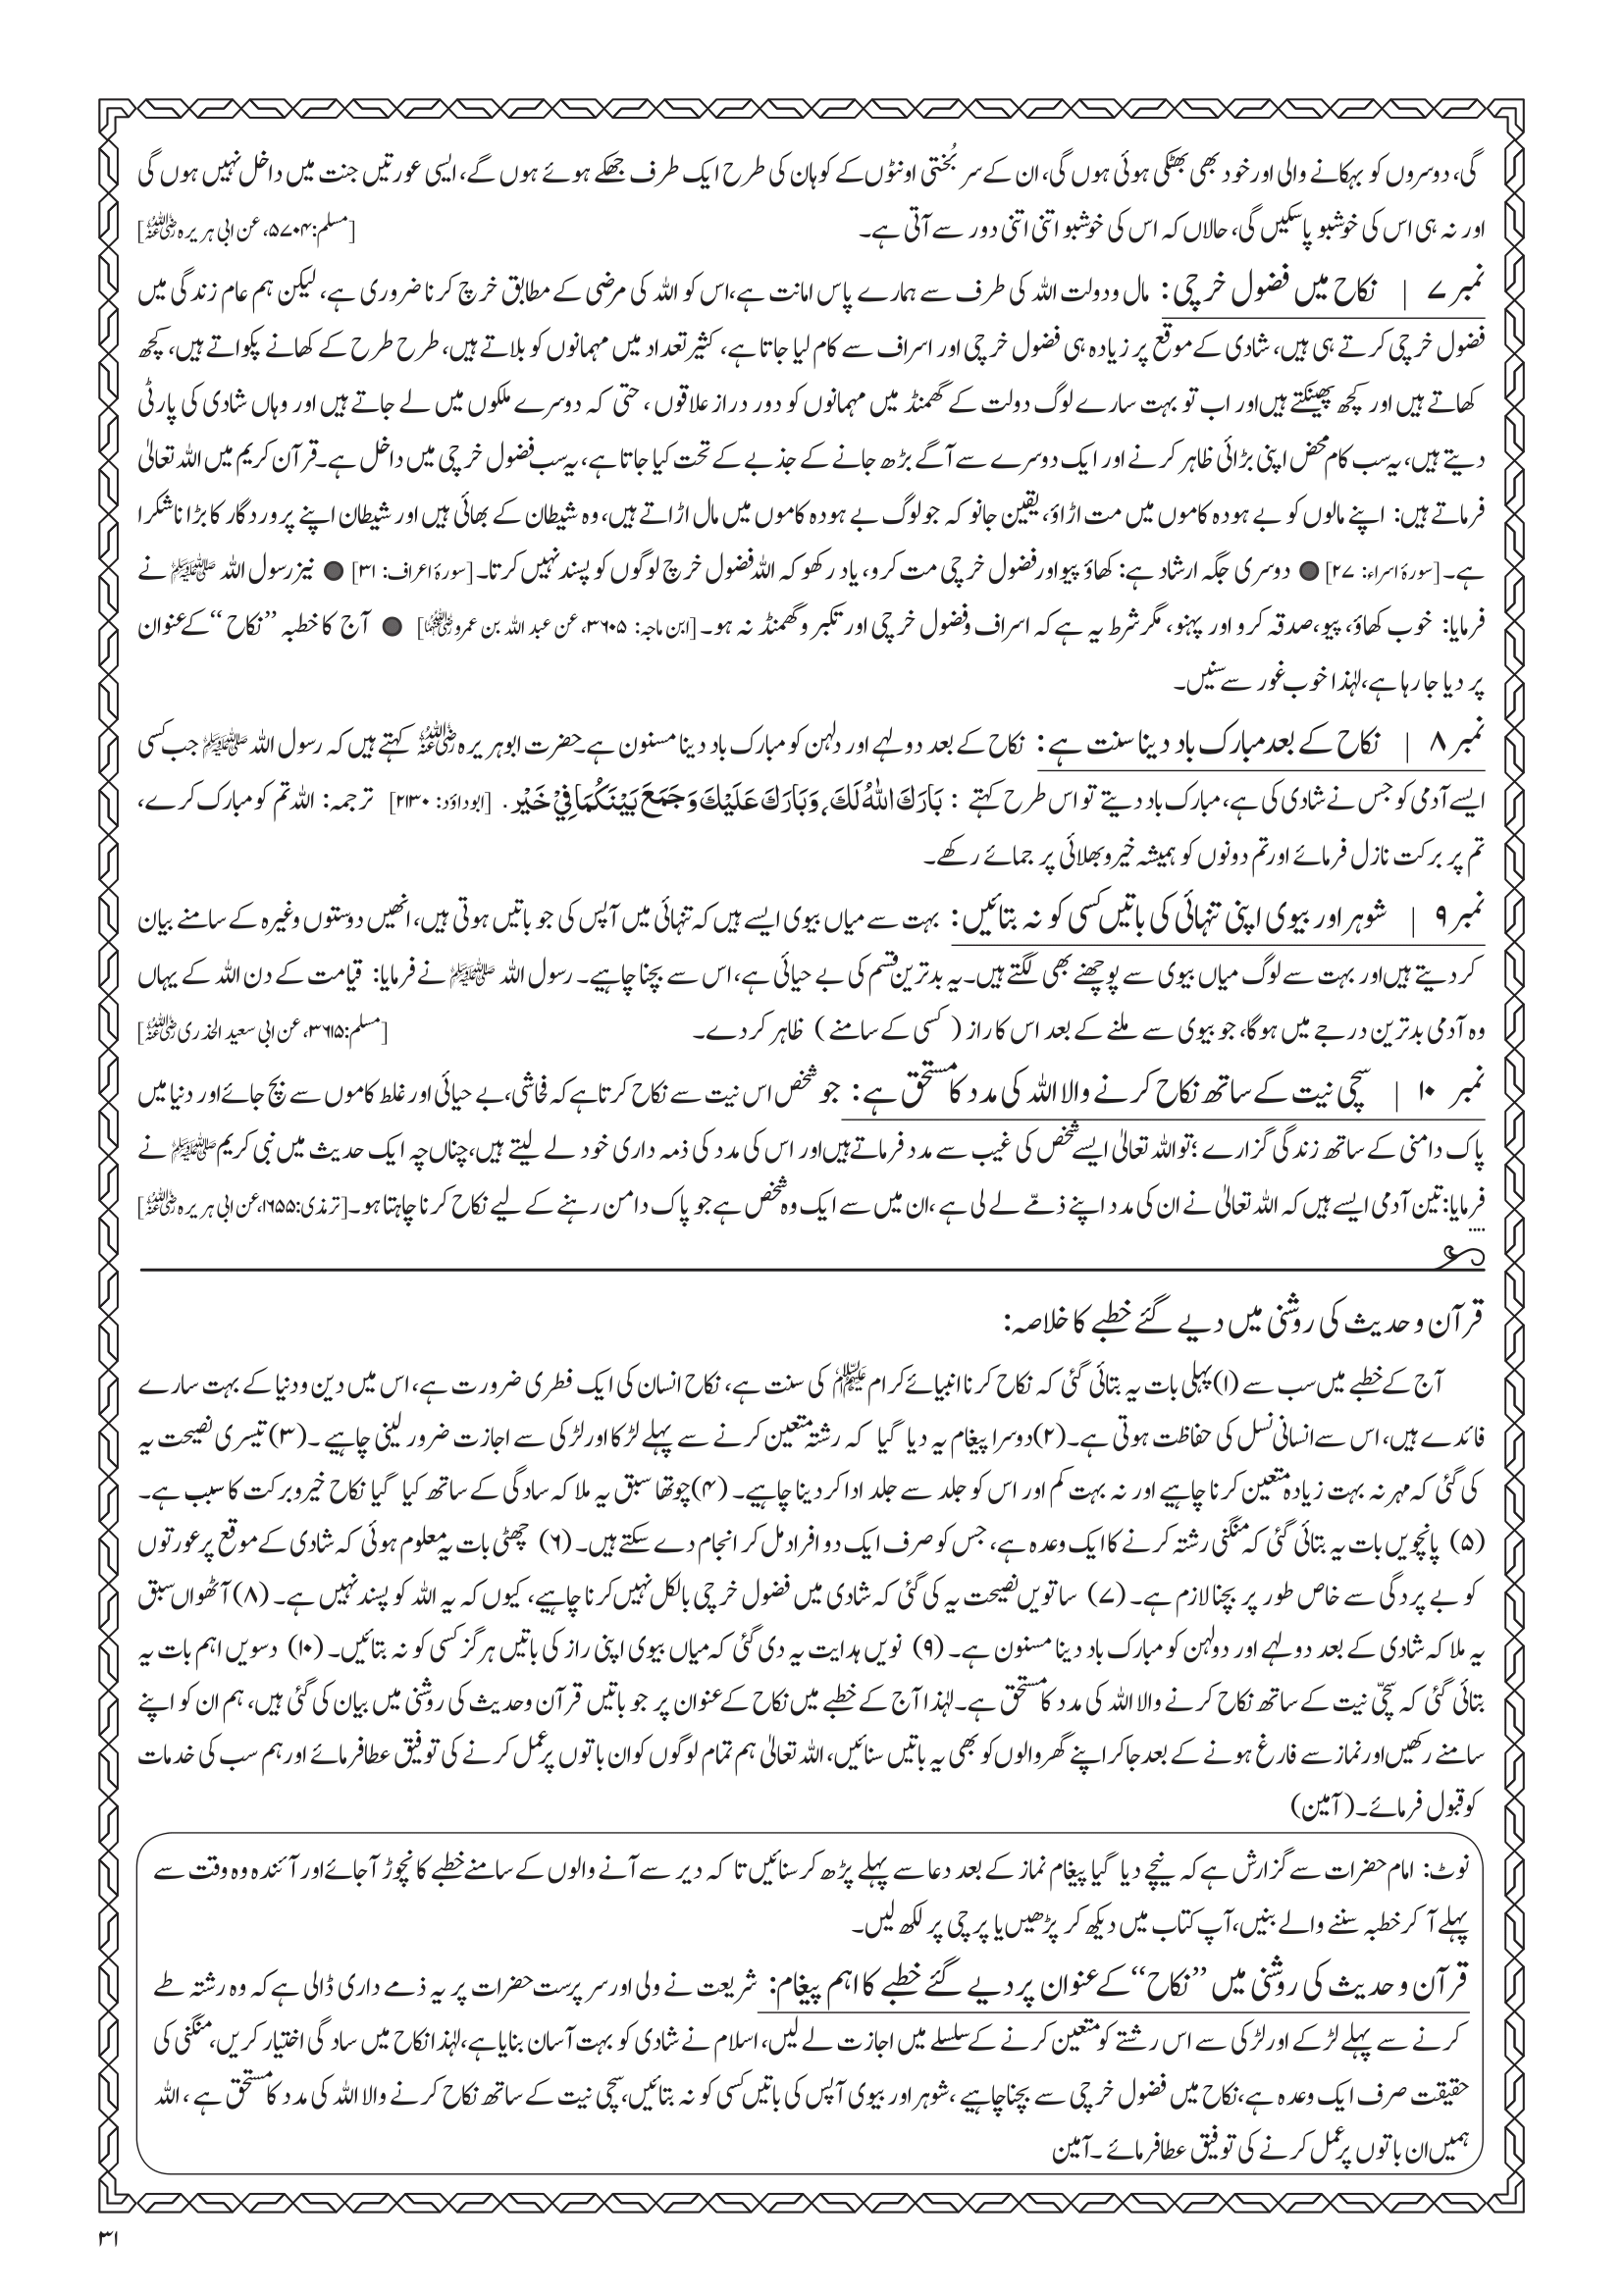 گی، دوسروں کو بہکانے والی اور خود بھی بھٹکی ہوئی ہوں گی، ان کے سر بُختی اونٹوں کے کوہان کی طرح ایک طرف جھکے ہوئے ہوں گے، ایسی عورتیں جنت میں داخل نہیں ہوں گی
اور نہ ہی اس کی خوشبو پاسکیں گی، حالاں کہ اس کی خوشبو اتنی اتنی دور سے آتی ہے۔ [مسلم: ۵۷۰۴، عن ابی ہریرہ رضی اللہ عنہ]
نمبر ۷ | نکاح میں فضول خرچی: مال و دولت اللہ کی طرف سے ہمارے پاس امانت ہے، اس کو اللہ کی مرضی کے مطابق خرچ کرنا ضروری ہے، لیکن ہم عام زندگی میں
فضول خرچی کرتے ہی ہیں، شادی کے موقع پر زیادہ ہی فضول خرچی اور اسراف سے کام لیا جاتا ہے، کثیر تعداد میں مہمانوں کو بلاتے ہیں، طرح طرح کے کھانے پکواتے ہیں، کچھ
کھاتے ہیں اور کچھ پھینکتے ہیں اور اب تو بہت سارے لوگ دولت کے گھمنڈ میں مہمانوں کو دور دراز علاقوں، حتی کہ دوسرے ملکوں میں لے جاتے ہیں اور وہاں شادی کی پارٹی
دیتے ہیں، یہ سب کام محض اپنی بڑائی ظاہر کرنے اور ایک دوسرے سے آگے بڑھ جانے کے جذبے کے تحت کیا جاتا ہے، یہ سب فضول خرچی میں داخل ہے۔ قرآن کریم میں اللہ تعالیٰ
فرماتے ہیں: اپنے مالوں کو بے ہودہ کاموں میں مت اڑاؤ، یقین جانو کہ جو لوگ بے ہودہ کاموں میں مال اڑاتے ہیں، وہ شیطان کے بھائی ہیں اور شیطان اپنے پروردگار کا بڑا ناشکرا
ہے۔ [سورۂ اسراء: ۲۷] ● دوسری جگہ ارشاد ہے: کھاؤ پیو اور فضول خرچی مت کرو، یاد رکھو کہ اللہ فضول خرچ لوگوں کو پسند نہیں کرتا۔ [سورۂ اعراف: ۳۱] ● نیز رسول اللہ ﷺ نے
فرمایا: خوب کھاؤ، پیو، صدقہ کرو اور پہنو، مگر شرط یہ ہے کہ اسراف و فضول خرچی اور تکبر و گھمنڈ نہ ہو۔ [ابن ماجہ: ۳۶۰۵، عن عبد اللہ بن عمرو رضی اللہ عنہما] ● آج کا خطبہ ”نکاح“ کے عنوان
پر دیا جا رہا ہے، لہٰذا خوب غور سے سنیں۔
نمبر ۸ | نکاح کے بعد مبارک باد دینا سنت ہے: نکاح کے بعد دولہے اور دلہن کو مبارک باد دینا مسنون ہے۔ حضرت ابو ہریرہ رضی اللہ عنہ کہتے ہیں کہ رسول اللہ ﷺ جب کسی
ایسے آدمی کو جس نے شادی کی ہے، مبارک باد دیتے تو اس طرح کہتے : بَارَكَ اللّٰهُ لَكَ، وَبَارَكَ عَلَيْكَ وَجَمَعَ بَيْنَكُمَا فِيْ خَيْرٍ. [ابوداؤد: ۲۱۳۰] ترجمہ: اللہ تم کو مبارک کرے،
تم پر برکت نازل فرمائے اور تم دونوں کو ہمیشہ خیر و بھلائی پر جمائے رکھے۔
نمبر ۹ | شوہر اور بیوی اپنی تنہائی کی باتیں کسی کو نہ بتائیں: بہت سے میاں بیوی ایسے ہیں کہ تنہائی میں آپس کی جو باتیں ہوتی ہیں، انھیں دوستوں وغیرہ کے سامنے بیان
کردیتے ہیں اور بہت سے لوگ میاں بیوی سے پوچھنے بھی لگتے ہیں۔ یہ بدترین قسم کی بے حیائی ہے، اس سے بچنا چاہیے۔ رسول اللہ ﷺ نے فرمایا: قیامت کے دن اللہ کے یہاں
وہ آدمی بدترین درجے میں ہوگا، جو بیوی سے ملنے کے بعد اس کا راز (کسی کے سامنے) ظاہر کردے۔ [مسلم: ۳۶۱۵، عن ابی سعید الخدری رضی اللہ عنہ]
نمبر ۱۰ | سچی نیت کے ساتھ نکاح کرنے والا اللہ کی مدد کا مستحق ہے: جو شخص اس نیت سے نکاح کرتا ہے کہ فحاشی، بے حیائی اور غلط کاموں سے بچ جائے اور دنیا میں
پاک دامنی کے ساتھ زندگی گزارے؛ تو اللہ تعالیٰ ایسے شخص کی غیب سے مدد فرماتے ہیں اور اس کی مدد کی ذمہ داری خود لے لیتے ہیں، چناں چہ ایک حدیث میں نبی کریم ﷺ نے
فرمایا: تین آدمی ایسے ہیں کہ اللہ تعالیٰ نے ان کی مدد اپنے ذمّے لے لی ہے، ان میں سے ایک وہ شخص ہے جو پاک دامن رہنے کے لیے نکاح کرنا چاہتا ہو۔ [ترمذی: ۱۶۵۵، عن ابی ہریرہ رضی اللہ عنہ]
قرآن و حدیث کی روشنی میں دیے گئے خطبے کا خلاصہ:
آج کے خطبے میں سب سے (۱) پہلی بات یہ بتائی گئی کہ نکاح کرنا انبیائے کرام علیہم السلام کی سنت ہے، نکاح انسان کی ایک فطری ضرورت ہے، اس میں دین و دنیا کے بہت سارے
فائدے ہیں، اس سے انسانی نسل کی حفاظت ہوتی ہے۔ (۲) دوسرا پیغام یہ دیا گیا کہ رشتہ متعین کرنے سے پہلے لڑکا اور لڑکی سے اجازت ضرور لینی چاہیے۔ (۳) تیسری نصیحت یہ
کی گئی کہ مہر نہ بہت زیادہ متعین کرنا چاہیے اور نہ بہت کم اور اس کو جلد سے جلد ادا کردینا چاہیے۔ (۴) چوتھا سبق یہ ملا کہ سادگی کے ساتھ کیا گیا نکاح خیر و برکت کا سبب ہے۔
(۵) پانچویں بات یہ بتائی گئی کہ منگنی رشتہ کرنے کا ایک وعدہ ہے، جس کو صرف ایک دو افراد مل کر انجام دے سکتے ہیں۔ (۶) چھٹی بات یہ معلوم ہوئی کہ شادی کے موقع پر عورتوں
کو بے پردگی سے خاص طور پر بچنا لازم ہے۔ (۷) ساتویں نصیحت یہ کی گئی کہ شادی میں فضول خرچی بالکل نہیں کرنا چاہیے، کیوں کہ یہ اللہ کو پسند نہیں ہے۔ (۸) آٹھواں سبق
یہ ملا کہ شادی کے بعد دولہے اور دولہن کو مبارک باد دینا مسنون ہے۔ (۹) نویں ہدایت یہ دی گئی کہ میاں بیوی اپنی راز کی باتیں ہرگز کسی کو نہ بتائیں۔ (۱۰) دسویں اہم بات یہ
بتائی گئی کہ سچّی نیت کے ساتھ نکاح کرنے والا اللہ کی مدد کا مستحق ہے۔ لہٰذا آج کے خطبے میں نکاح کے عنوان پر جو باتیں قرآن و حدیث کی روشنی میں بیان کی گئی ہیں، ہم ان کو اپنے
سامنے رکھیں اور نماز سے فارغ ہونے کے بعد جاکر اپنے گھر والوں کو بھی یہ باتیں سنائیں، اللہ تعالیٰ ہم تمام لوگوں کو ان باتوں پر عمل کرنے کی توفیق عطا فرمائے اور ہم سب کی خدمات
کو قبول فرمائے۔ (آمین)
نوٹ: امام حضرات سے گزارش ہے کہ نیچے دیا گیا پیغام نماز کے بعد دعا سے پہلے پڑھ کر سنائیں تا کہ دیر سے آنے والوں کے سامنے خطبے کا نچوڑ آجائے اور آئندہ وہ وقت سے
پہلے آکر خطبہ سننے والے بنیں، آپ کتاب میں دیکھ کر پڑھیں یا پرچی پر لکھ لیں۔
قرآن و حدیث کی روشنی میں ”نکاح“ کے عنوان پر دیے گئے خطبے کا اہم پیغام: شریعت نے ولی اور سرپرست حضرات پر یہ ذمے داری ڈالی ہے کہ وہ رشتہ طے
کرنے سے پہلے لڑکے اور لڑکی سے اس رشتے کو متعین کرنے کے سلسلے میں اجازت لے لیں، اسلام نے شادی کو بہت آسان بنایا ہے، لہٰذا نکاح میں سادگی اختیار کریں، منگنی کی
حقیقت صرف ایک وعدہ ہے، نکاح میں فضول خرچی سے بچنا چاہیے، شوہر اور بیوی آپس کی باتیں کسی کو نہ بتائیں، سچی نیت کے ساتھ نکاح کرنے والا اللہ کی مدد کا مستحق ہے، اللہ
ہمیں ان باتوں پر عمل کرنے کی توفیق عطا فرمائے۔ آمین
۳۱